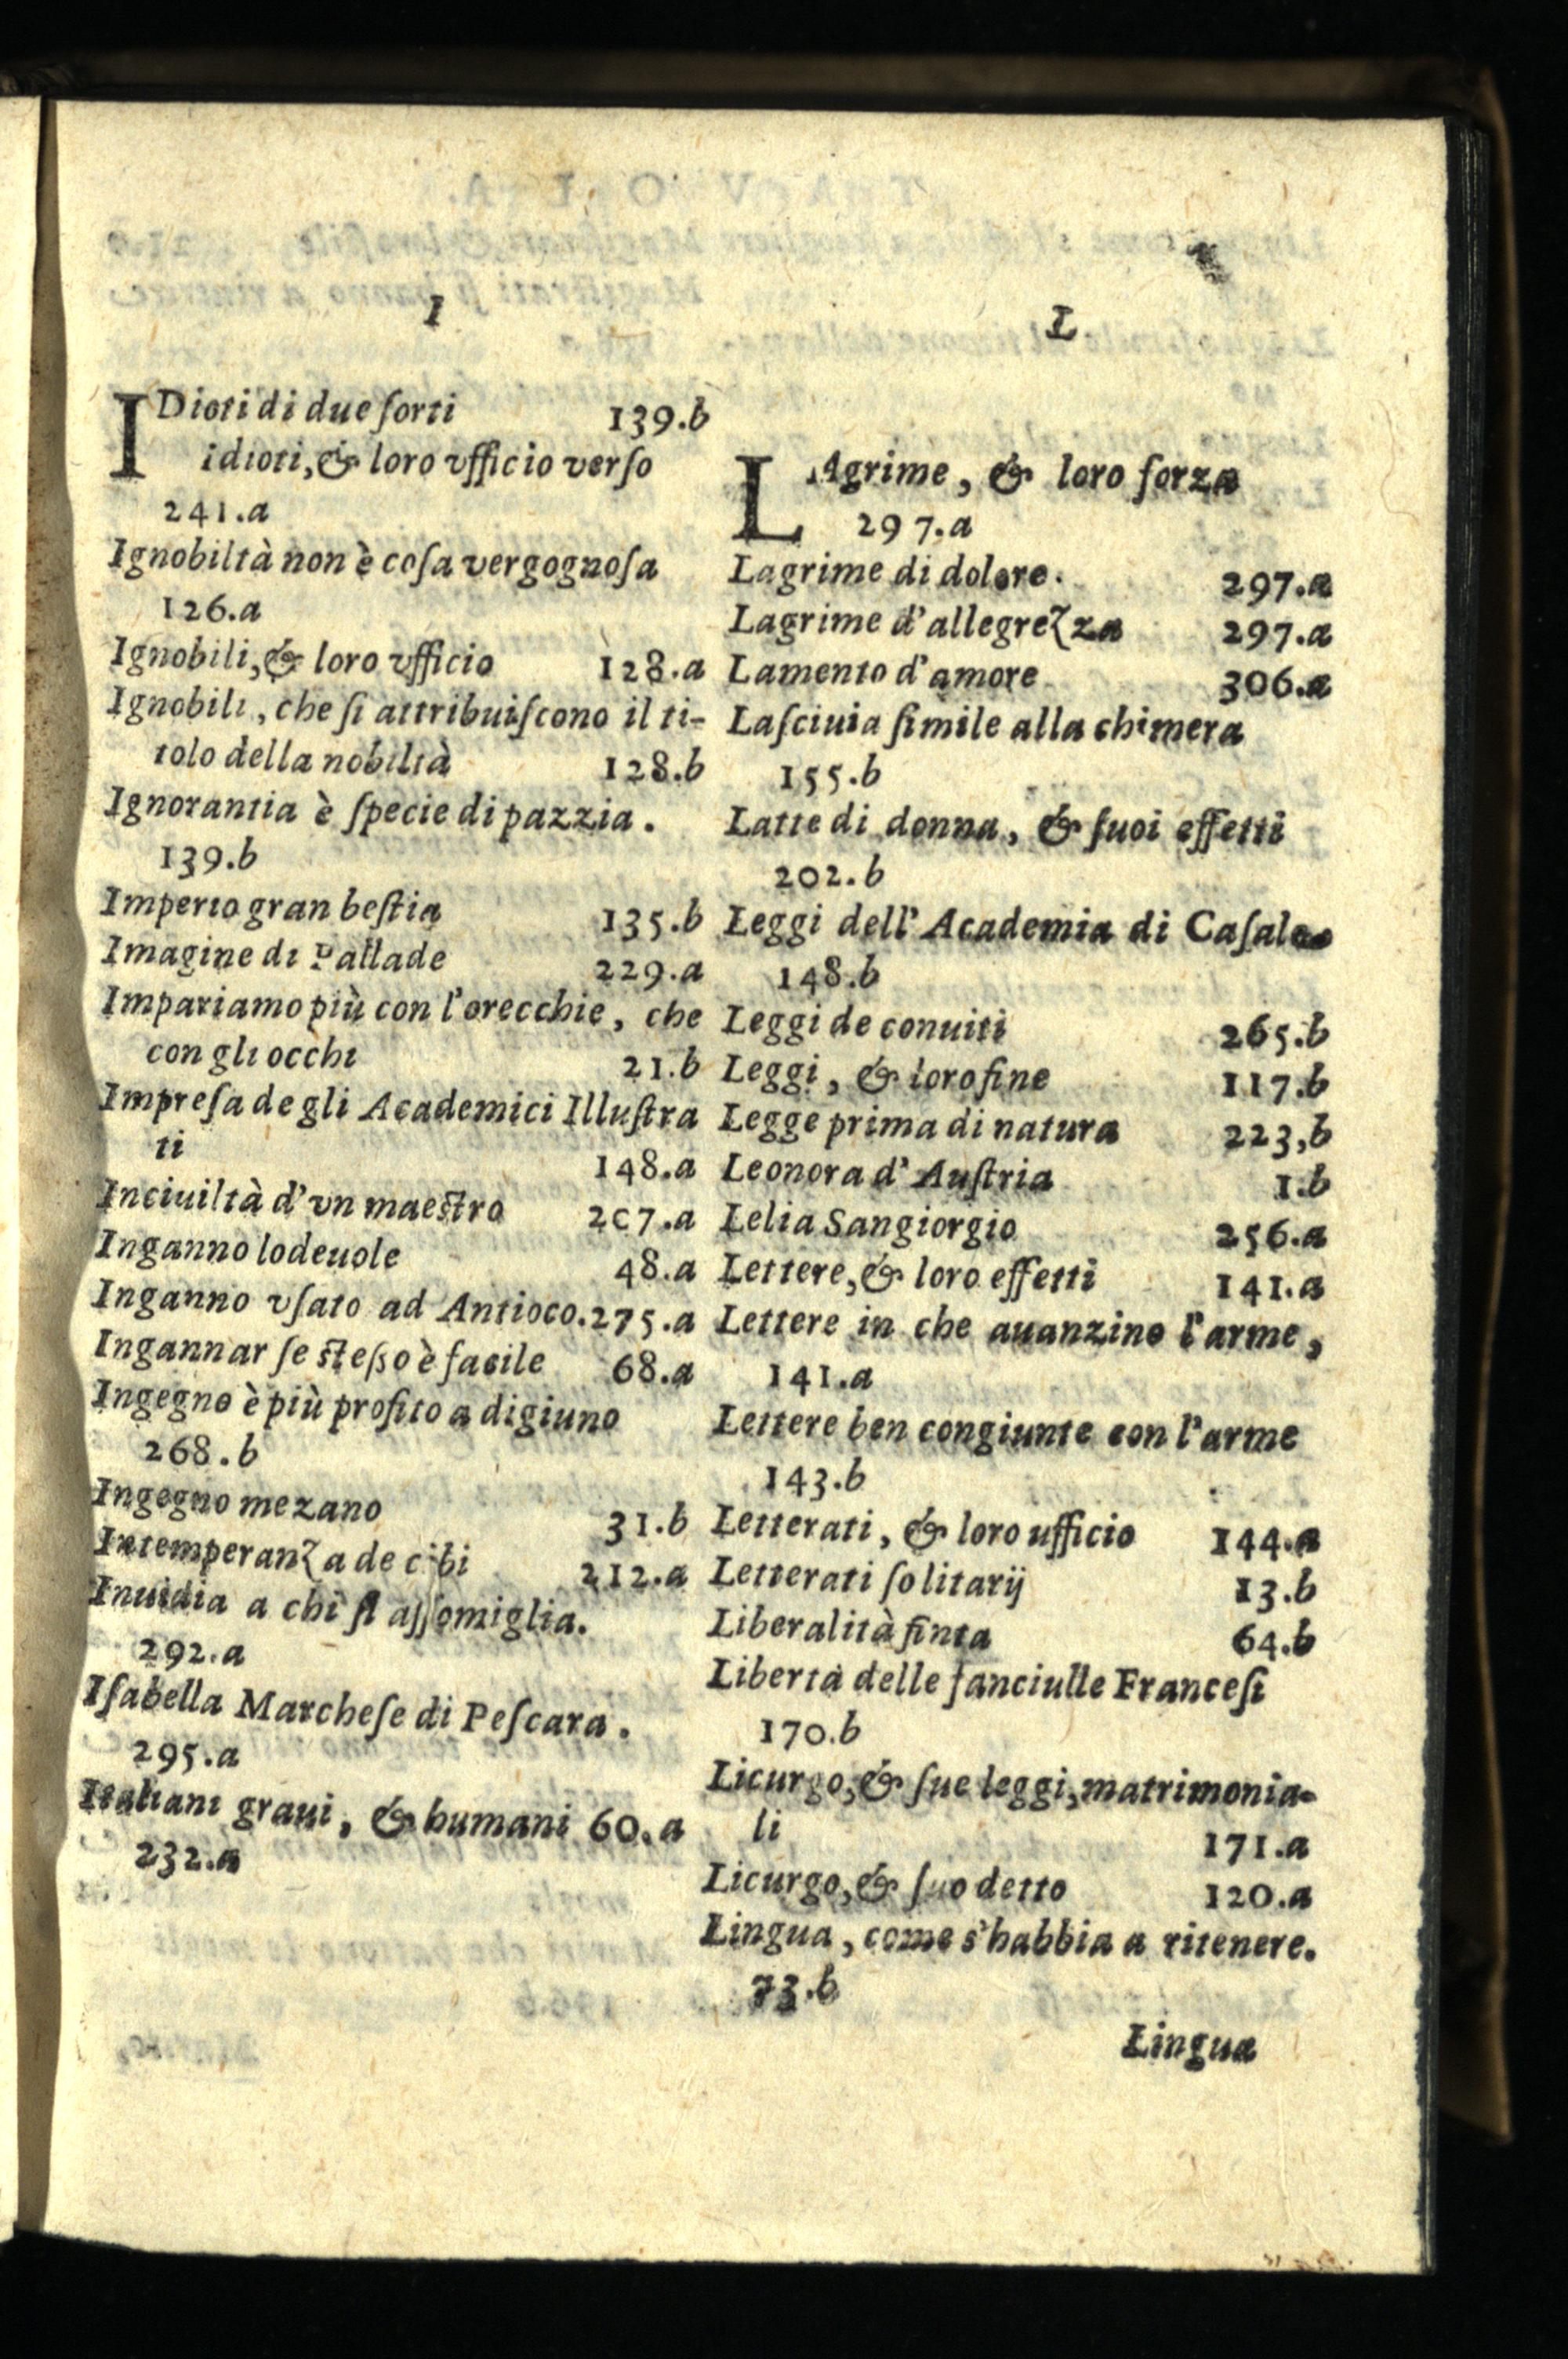 I
IDioti di due ſorti 139.b
idioti, & loro vfficio verſo
241.a
Ignobiltà non è coſa vergognoſa
126.a
Ignobili, & loro vfficio 128.a
Ignobili, che ſi attribuiſcono il ti-
tolo della nobiltà 128.b
Ignorantia è ſpecie di pazzia.
139.b
Imperio gran beſtia 135.b
Imagine di Pallade 229.a
Impariamo più con l'orecchie, che
con gli occhi 21.b
Impreſa degli Academici Illuſtra
ti 148.a
Inciuiltà d'vn maeſtro 207.a
Inganno lodeuole 48.a
Inganno vſato ad Antioco. 275.a
Ingannar ſe ſteſſo è facile 68.a
Ingegno è più profito a digiuno
268.b
Ingegno mezano 31.b
Intemperanza de cibi 212.a
Inuidia a chi ſi aſſomiglia.
292.a
Iſabella Marcheſe di Peſcara.
295.a
Italiani graui, & humani 60.a
232.a
L
LAgrime, & loro forza
297.a
Lagrime di dolore. 297.a
Lagrime d'allegrezza 297.a
Lamento d'amore 306.a
Laſciuia ſimile alla chimera
155.b
Latte di donna, & ſuoi effetti
202.b
Leggi dell'Academia di Caſale
148.b
Leggi de conuiti 265.b
Leggi, & loro fine 117.b
Legge prima di natura 223,b
Leonora d'Auſtria 1.b
Lelia Sangiorgio 256.a
Lettere, & loro effetti 141.a
Lettere in che auanzino l'arme,
141.a
Lettere ben congiunte con l'arme
143.b
Letterati, & loro ufficio 144.a
Letterati ſolitarij 13.b
Liberalità finta 64.b
Libertà delle fanciulle Franceſi
170.b
Licurgo, & ſue leggi, matrimonia-
li 171.a
Licurgo, & ſuo detto 120.a
Lingua, come s'habbia a ritenere.
73.b
Lingua